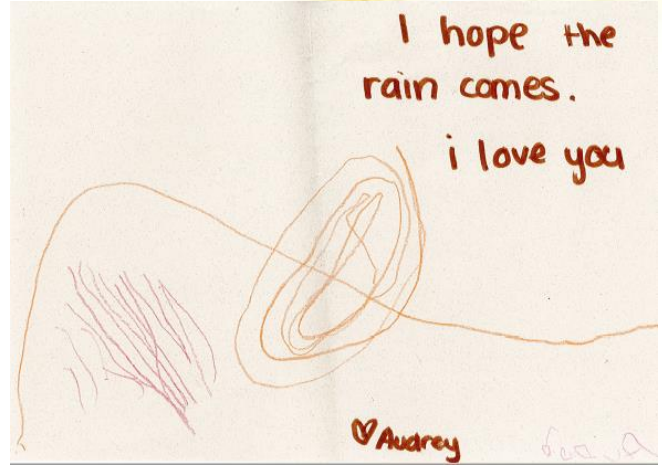 I hope the
rain comes.
i love you
♡ Audrey